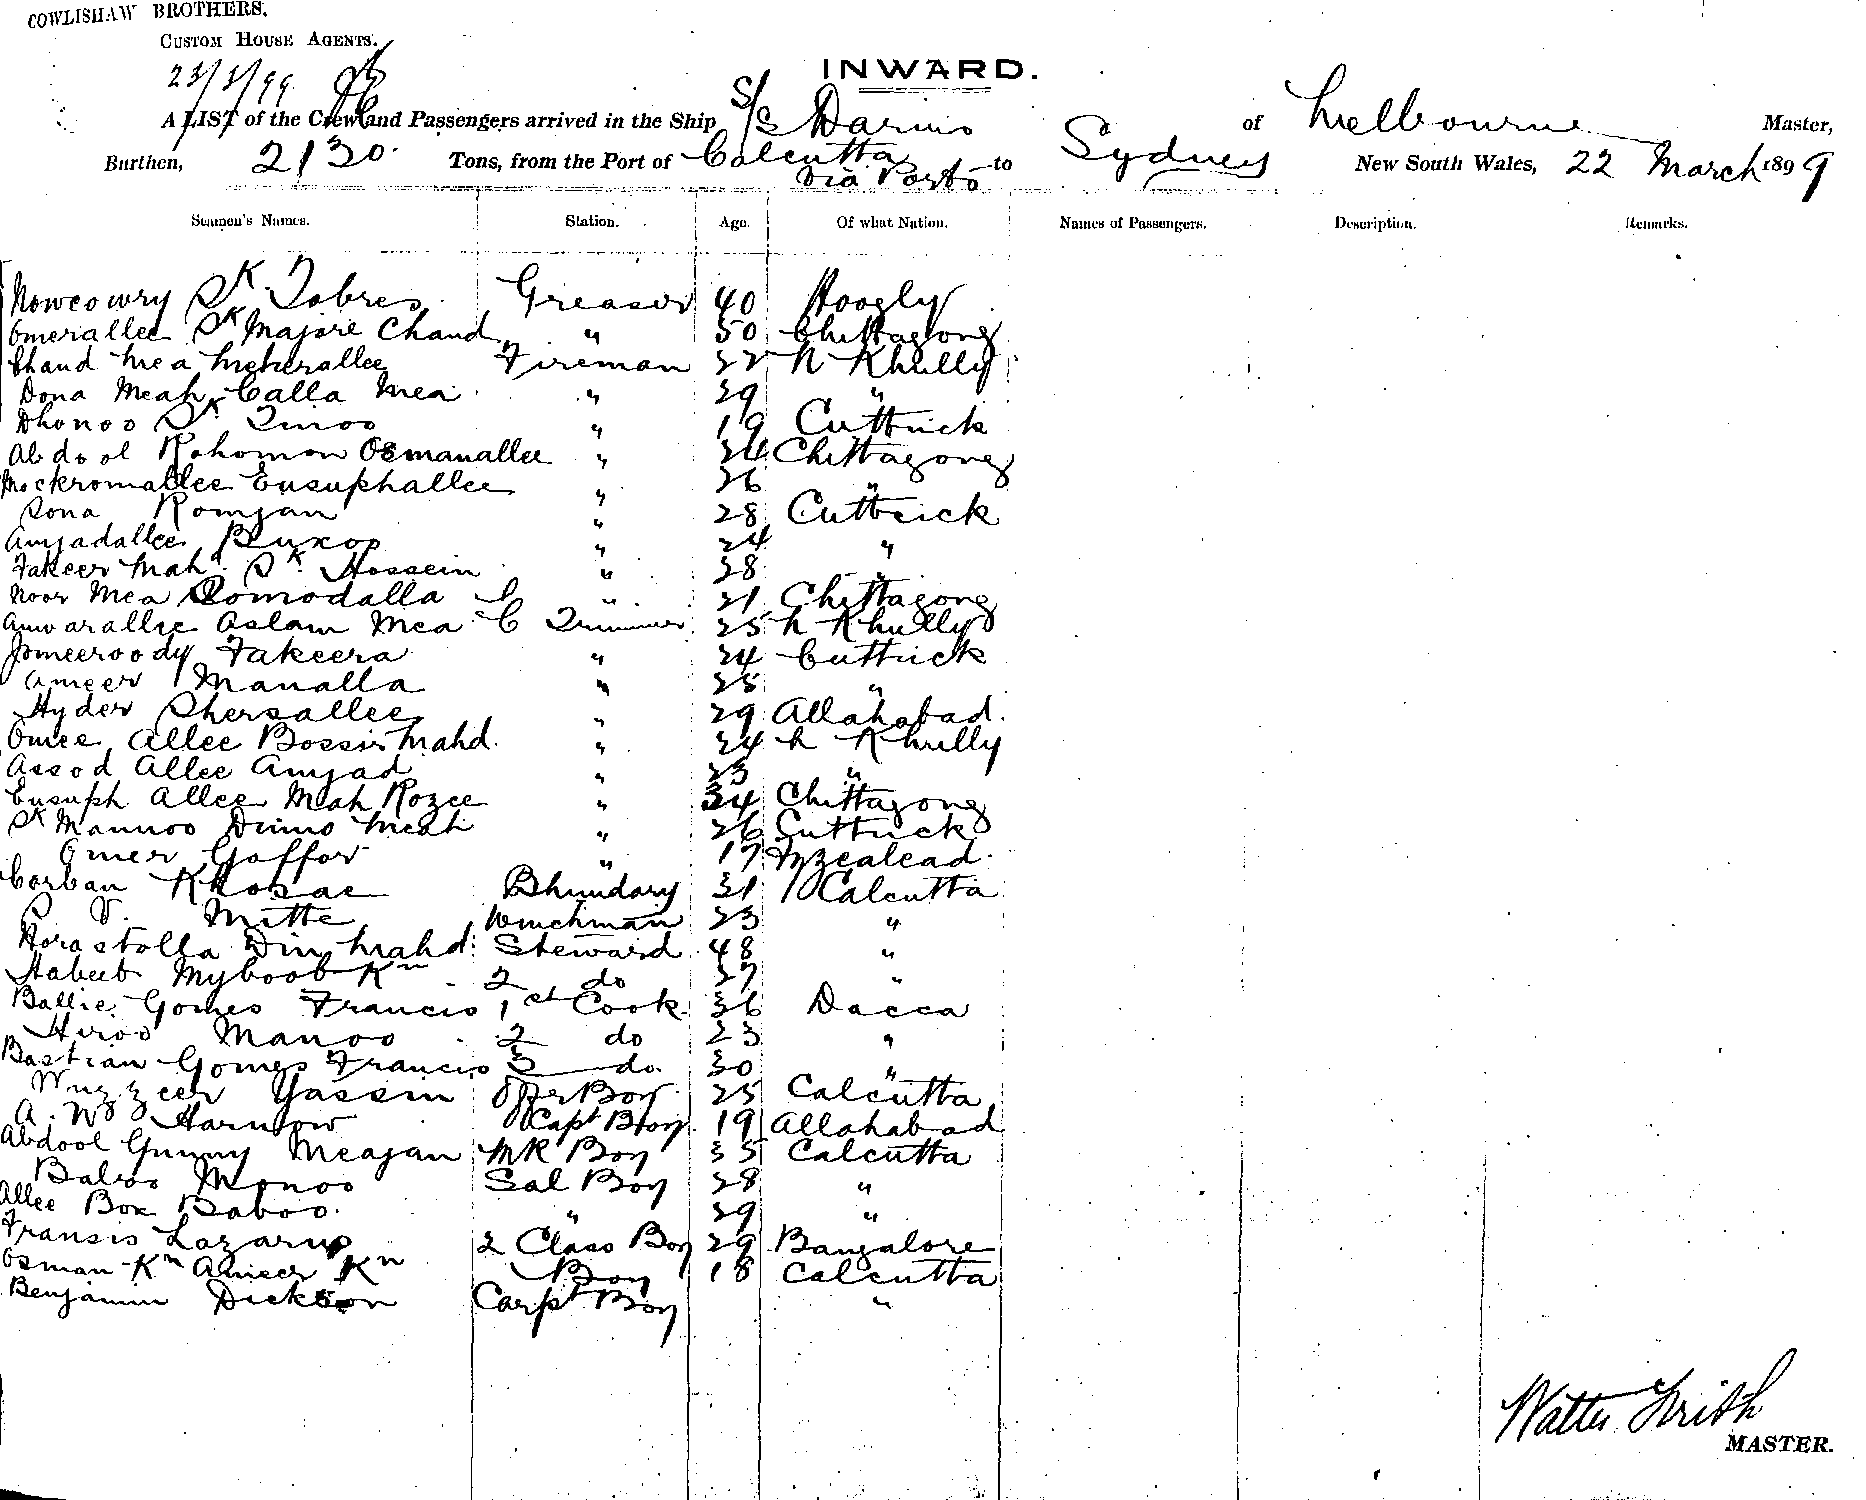 COWLISHAW BROTHERS.
CUSTOM HOUSE AGENTS.
23/3/99
INWARD.
A LIST of the Crew and Passengers arrived in the Ship S/S Darius of Melbourne Master,
Burthen, 2130 Tons, from the Port of Calcutta via Ports to Sydney New South Wales, 22 March 1899
Seamen's Names. Station. Age. Of what Nation. Names of Passengers. Description. Remarks.
Nowcowry Sk Tobres Greaser 40 Hoogly
Omerallee Sk Majore Chand " 50 Chittagong
Chand Mea Meherallee Fireman 32 N Khully
Dona Meah Calla Mea " 29 "
Dhonoo Sk Tinoo " 19 Cuttrick
Abdool Rohomon Osmanallee " 24 Chittagong
Mockromallee Eusuphallee " 26 "
Sona Romjan " 28 Cuttrick
Amjadallee Buxoo " 24 "
Fakeer Mahd. Sk. Hossein " 38 "
Noor Mea Romodalla " 21 Chittagong
Anwarallee Aslam Mea C Trimmer 25 N Khully
Jomeeroody Fakeera " 24 Cuttrick
Ameer Manalla " 25 "
Hyder Shersallee " 29 Allahabad.
Omee Allee Bossir Mahd. " 24 N Khully
Assod Allee Amjad " 23 "
Eusuph Allee Meah Rozee " 34 Chittagong
Sk Mannoo Dinno Meah " 26 Cuttrick
Omer Goffor " 19
Corban Khosae Bhundary 31 Calcutta
P. V. Mitte Winchman 23 "
Din Mahd. Steward 48 "
Habeeb Myboob Kn 2 do 37 "
Ballie Gomes Francis 1st Cook 36 Dacca
Hiroo Manoo 2 do 23 "
Bastian Gomes Francis 3 do. 30 "
Wuzzeer Yassin Offr Boy 25 Calcutta
A. W. Capt Boy. 19 Allahabad
Abdool Gunny Meajan MR Boy 35 Calcutta
Baloo Monoo Sal Boy 28 "
Allee Box Baboo. " 29 "
Fransis Lazarus 2 Class Boy 29 Bangalore
Osman Kn Ameer Kn Boy 18 Calcutta
Benjamin Dickson Carpt Boy "
Walter Frith
MASTER.